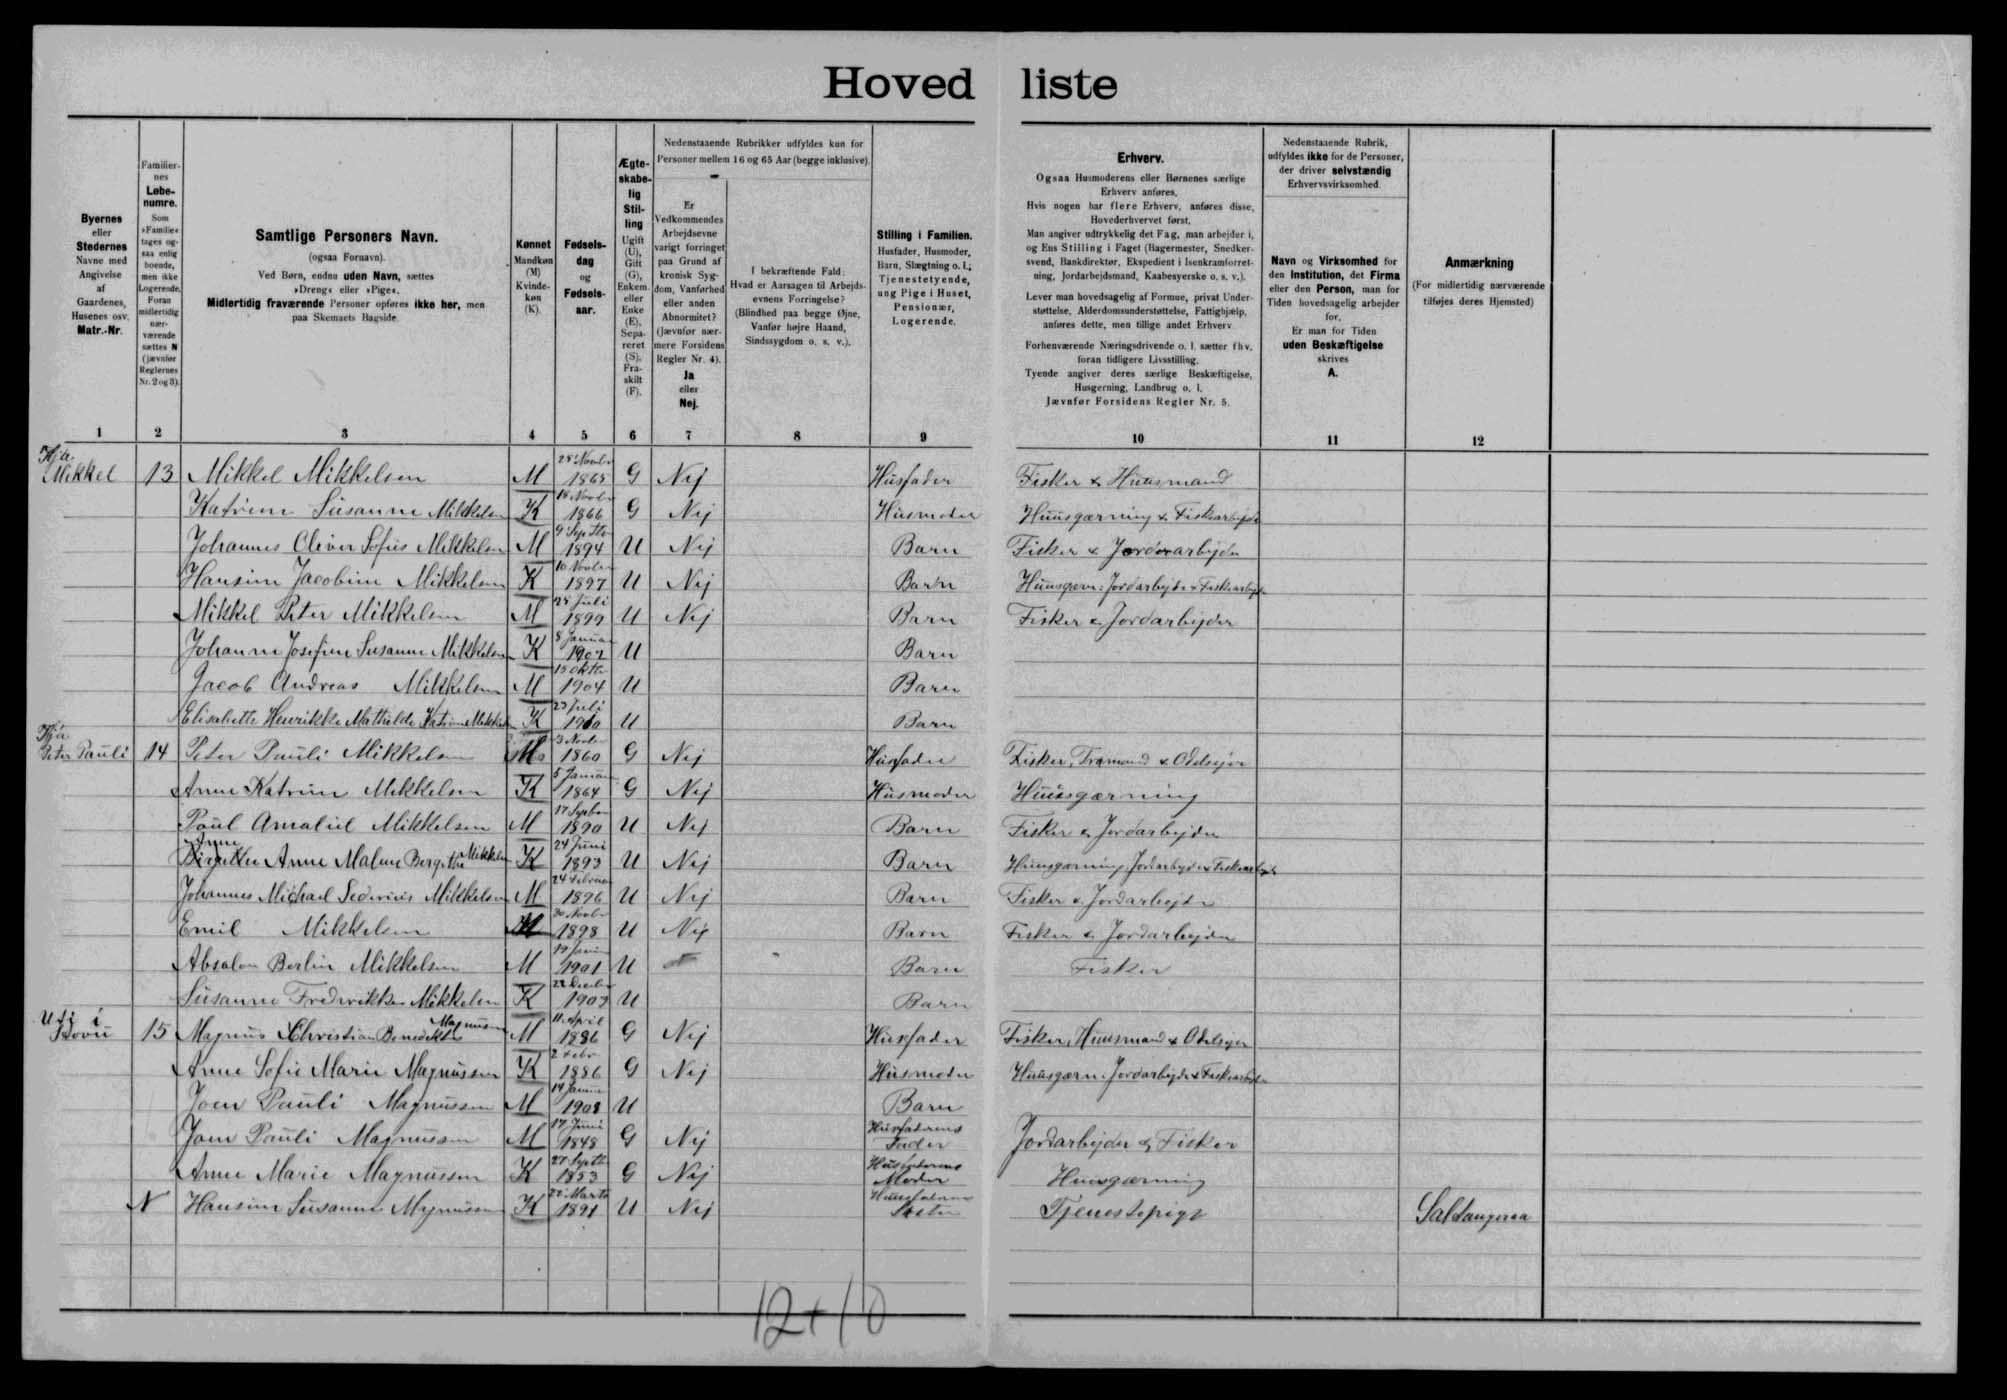 Hoved liste
Byernes
eller
Stedernes
Navne med
Angivelse
af
Gaardenes,
Husenes osv.
Matr.-Nr.
Familier-
nes
Løbe-
numre.
Som
»Familie«
tages og-
saa enlig
boende,
men ikke
Logerende.
Foran
midlertidig
nær-
værende
sættes N
(jævnfør
Reglernes
Nr. 2 og 3).
Samtlige Personers Navn.
(ogsaa Fornavn).
Ved Børn, endnu uden Navn, sættes
»Dreng« eller »Pige«.
Midlertidig fraværende Personer opføres ikke her, men
paa Skemaets Bagside.
Kønnet
Mandkøn
(M)
Kvinde-
køn
(K).
Fødsels-
dag
og
Fødsels-
aar.
Ægte-
skabe-
lig
Stil-
ling
Ugift
(U),
Gift
(G),
Enkem.
eller
Enke
(E),
Sepa-
reret
(S),
Fra-
skilt
(F).
Nedenstaaende Rubrikker udfyldes kun for
Personer mellem 16 og 65 Aar (begge inklusive).
Er
Vedkommendes
Arbejdsevne
varigt forringet
paa Grund af
kronisk Syg-
dom, Vanførhed
eller anden
Abnormitet?
(Jævnfør nær-
mere Forsidens
Regler Nr. 4).
Ja
eller
Nej.
I bekræftende Fald:
Hvad er Aarsagen til Arbejds-
evnens Forringelse?
(Blindhed paa begge Øjne,
Vanfør højre Haand,
Sindssygdom o. s. v.).
Stilling i Familien.
Husfader, Husmoder,
Barn, Slægtning o. l.;
Tjenestetyende,
ung Pige i Huset,
Pensionær,
Logerende.
Erhverv.
Ogsaa Husmoderens eller Børnenes særlige
Erhverv anføres.
Hvis nogen har flere Erhverv, anføres disse,
Hovederhvervet først.
Man angiver udtrykkelig det Fag, man arbejder i,
og Ens Stilling i Faget (Bagermester, Snedker-
svend, Bankdirektør, Ekspedient i Isenkramforret-
ning, Jordarbejdsmand, Kaabesyerske o. s. v.).
Lever man hovedsagelig af Formue, privat Under-
støttelse, Alderdomsunderstøttelse, Fattighjælp,
anføres dette, men tillige andet Erhverv.
Forhenværende Næringsdrivende o. l. sætter fhv.
foran tidligere Livsstilling.
Tyende angiver deres særlige Beskæftigelse,
Husgerning, Landbrug o. l.
Jævnfør Forsidens Regler Nr. 5.
Nedenstaaende Rubrik,
udfyldes ikke for de Personer,
der driver selvstændig
Erhvervsvirksomhed.
Navn og Virksomhed for
den Institution, det Firma
eller den Person, man for
Tiden hovedsagelig arbejder
for.
Er man for Tiden
uden Beskæftigelse
skrives
A.
Anmærkning
(For midlertidig nærværende
tilføjes deres Hjemsted)
1 2 3 4 5 6 7 8 9 10 11 12
Hja
Mikkel 13 Mikkel Mikkelsen M 1865 G Nej Husfader Fisker & Huusmand
Katrine Susanne Mikkelsen K 1866 G Nej Husmoder Huusgærning & Fiskearbejde
Johannes Oliver Sofus Mikkelsen M 9 Septbr 1894 U Nej Barn Fisker & Jordarbejder
Hansine Jacobine Mikkelsen K 10 Novbr 1897 U Nej Barn Huusgærn: Jordarbejde & Fiskearbejde
Mikkel Peter Mikkelsen M 25 Juli 1899 U Nej Barn Fisker & Jordarbejder
Johanne Josefine Susanne Mikkelsen K 8 Januar 1902 U Barn
Jacob Andreas Mikkelsen M 15 Oktbr 1904 U Barn
Elisabette Henrikke Mathilde Katrine Mikkelsen K 23 Juli 1910 U Barn
Hja
Peter Pauli 14 Peter Pauli Mikkelsen M 3 Novbr 1860 G Nej Husfader Fisker, & Odelsejer
Anne Katrine Mikkelsen K 5 Januar 1864 G Nej Husmoder Huusgærning
Poul Amaliel Mikkelsen M 17 1890 U Nej Barn Fisker & Jordarbejder
Anne Malene Bergithe Mikkelsen K 24 Juni 1893 U Nej Barn Huusgærning Jordarbejde & Fiskearbejde
Johannes Michael Mikkelsen M 24 Februar 1896 U Nej Barn Fisker & Jordarbejder
Emil Mikkelsen M 20 Novbr 1898 U Nej Barn Fisker & Jordarbejder
Absalon Berlin Mikkelsen M 1901 U Barn Fisker
Susanne Fredrikke Mikkelsen K 22 Decbr 1903 U Barn
Uti i
15 Magnus Christian Benedikt Magnussen M 11 April 1886 G Nej Husfader Fisker, Huusmand & Odelsejer
Anne Sofie Marie Magnussen K 2 Febr 1886 G Nej Husmoder Huusgærn: Jordarbejde & Fiskearbejde
Joen Pauli Magnussen M 14 Januar 1908 U Barn
Joen Pauli Magnussen M 17 Juni 1848 G Nej Husfaderens Fader Jordarbejder & Fisker
Anne Marie Magnussen K 27 Septbr 1853 G Nej Husfaderens Moder Huusgærning
N Hansine Susanne Magnussen K 22 Marts 1891 U Nej Husfaderens Søster Tjenestepige Saltangeraa
12+10